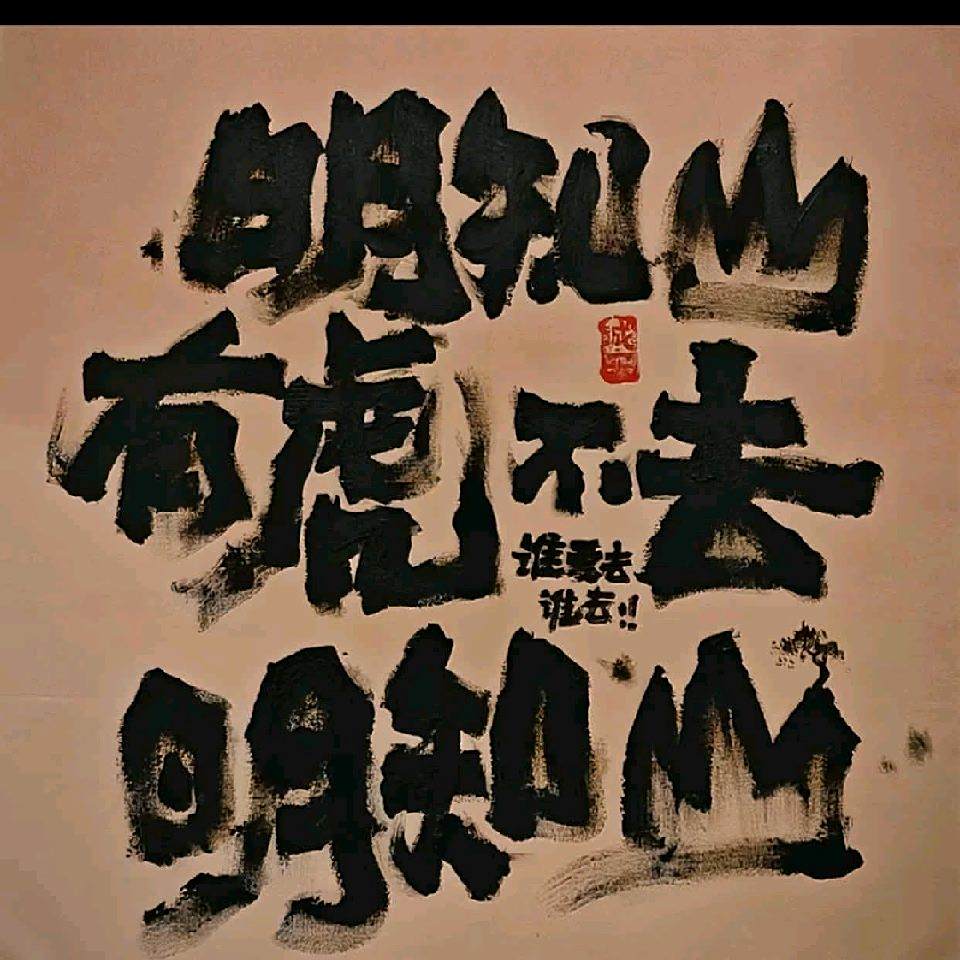 明知山
有虎不去
谁爱去
谁去!!
明知山